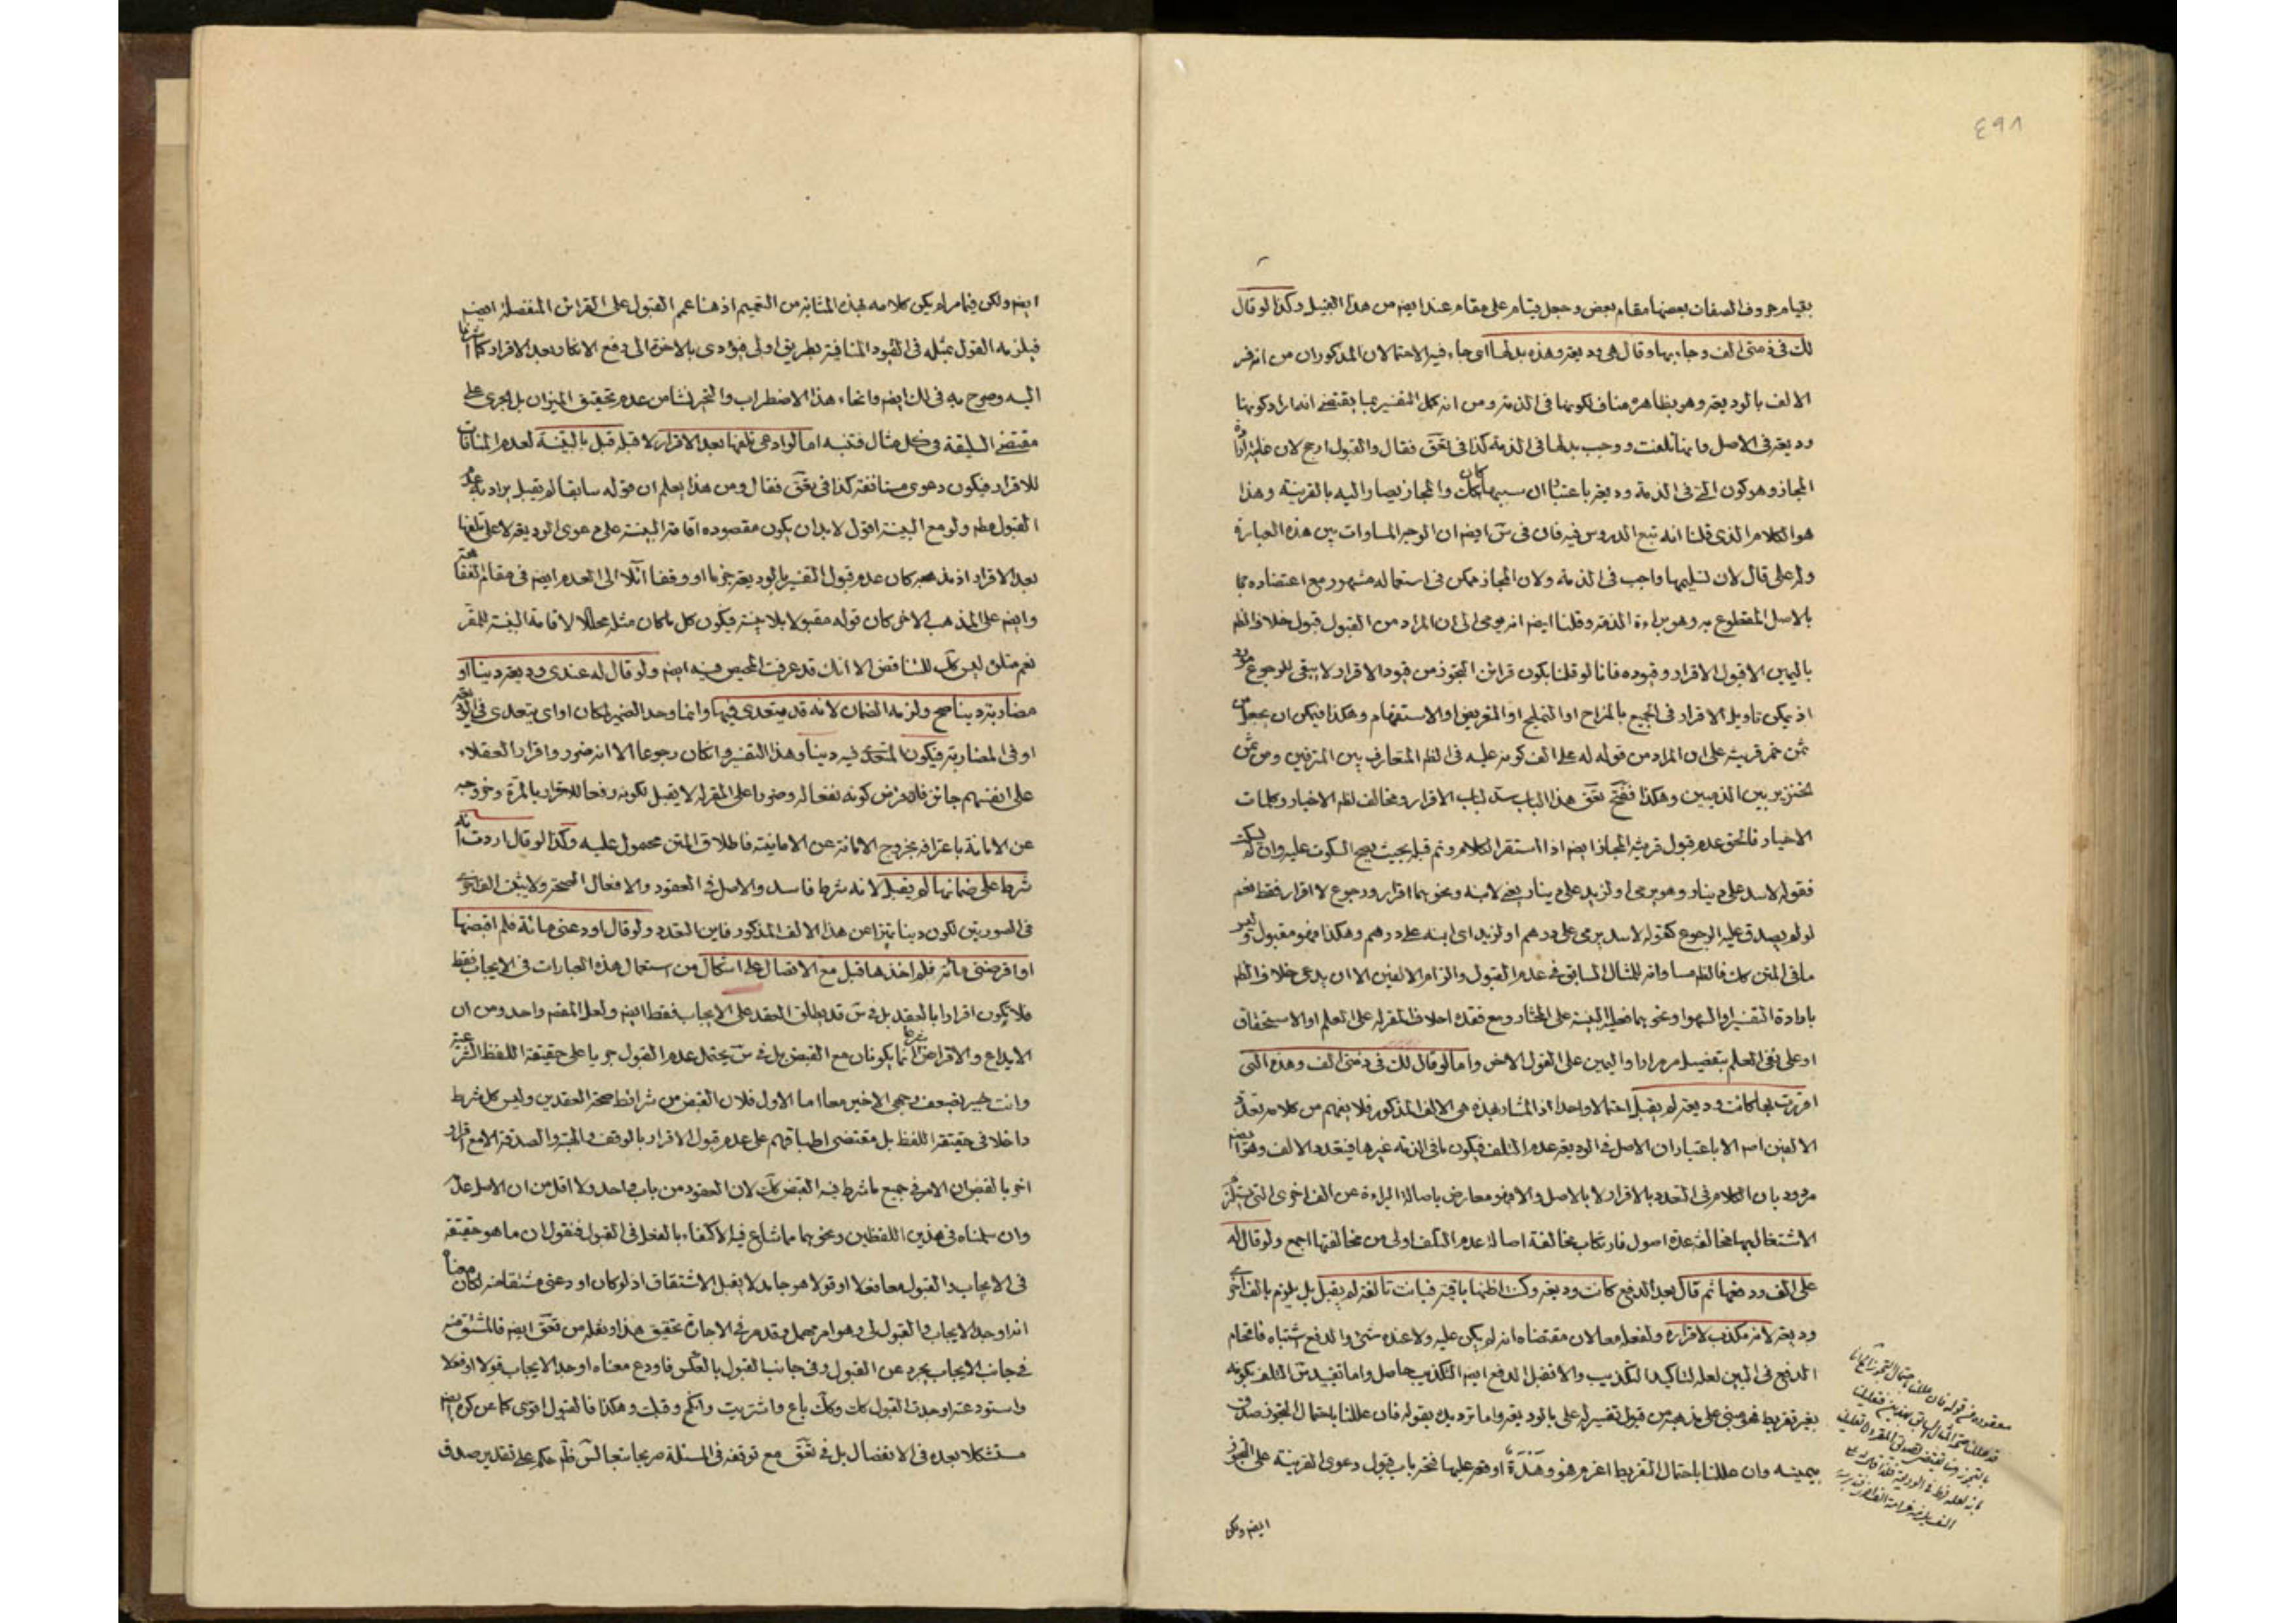 ٤٩٨
بقيام حروف الصفات بعضها مقام بعض وجعل قيام على مقام عند ايضم من هذا القبيل وكذا لو قال
لك في ذمتي الف وجاء بها وقال هي وديعة وهذه بدلها اى جاء فيه الاحتمالان المذكوران من انه فسر
الالف بالوديعة وهو بظاهره مناف لكونها في الذمة ومن انه كمل التفسير بما يقتضے انه اراد كونها
وديعة في الاصل وانها تلفت ووجب بدلها في الذمة كذا في تعق فقال والقبول ارجح لان غايته ارادة
المجاز وهو كون الشئ في الذمة وديعة باعتبار ان سببها كان كك والمجاز يصار اليه بالقرينة وهذا
هو الكلام الذى قلنا انه تبع الدروس فيه فان في س ايضم ان الوجه المساوات بين هذه العبارة
وله على قال لان تسليمها واجب في الذمة ولان المجاز ممكن في استعماله مشهور مع اعتضاده بما
بالاصل المقطوع به وهو براءة الذمة وقلنا ايضم انه يومى الى ان المراد من القبول قبول خلاف الظم
باليمين الا قبول الاقرار وقيوده فانا لو قلنا بكون قرائن التجوز من قيود الاقرار لا يبقى للرجوع مورد
اذ يمكن تاويل الاقرار في الجميع بالمزاح او التمليح او التعريض او الاستفهام وهكذا فيمكن ان يجعل من
ثمن خمر قرينة على ان المراد من قوله له على الف كونه عليه في الظم المتعارف بين المترفين ومن ثمن
خنزير بين الذميين وهكذا ففتح تعق هذا الباب سد لباب الاقرار ومخالف لظم الاخبار وكلمات
الاخيار فالحق عدم قبول قرينة المجاز ايضم اذا استقر الكلام وتم قبله بحيث يصح السكوت عليه وان لم يسكت
فقوله لاسد على دينار وهو يرمى او لزيد على دينار يعنى لابنه ونحوهما اقرار ورجوع لا اقرار فقط نعم
لو لم يصدق عليه الرجوع كقوله لاسد يرمى على درهم او لزيد اى ابنه على درهم وهكذا فهو مقبول وليس
ما في المتن كك فالظم مساواته للمثال السابق في عدم القبول والزام الالفين الا ان يدعى خلاف الظم
بارادة التفسير او السهو او نحوهما فعليه البينة على المختار ومع فقده احلاف المقر له على العلم او الاستحقاق
او على نفى العلم بتفصيل مر مرارا واليمين على القول الاخر واما لو قال لك في ذمتى الف وهذه التى
اقررت بها كانت وديعة لم يقبل احتمالا واحدا اذ المشار بهذه هى الالف المذكور فلا يفهم من كلامه تعدد
الالفين اصم الا باعتبار ان الاصل في الوديعة عدم التلف فيكون ما في الذمة غيرها فيتعدد الالف وهو ايضم
مردود بان الكلام في التعدد بالاقرار لا بالاصل والا فهو معارض باصالة البراءة عن الف اخرى التى يستلزم
الاشتغال بها مخالفة عدة اصول فارتكاب مخالفة اصالة عدم التلف اولى من مخالفتها اجمع ولو قال له
على الف ودفعها ثم قال بعد الدفع كانت وديعة وكنت اظنها باقية فبانت تالفة لم يقبل بل يلزم بالف اخرى
وديعة لانه مكذب لاقراره ولفعله معا لان مقتضاه انه لم يكن عليه ولا عنده شئ والدفع اشتباه فاقحام
الدفع في البين لعله لتاكيد التكذيب والا فقبل الدفع ايضم التكذيب حاصل واما تقييد س التلف بكونه
بغير تفريط فهو مبنى على مذهبه من قبول تفسير له على بالوديعة واما ترديده بقوله فان عللنا باحتمال التجوز صدق
بيمينه وان عللنا باحتمال التفريط اغرم هو وهذه او فتح عليها فتح باب قبول دعوى القرينة على التجوز
ايضم ولكن
ايضم ولكن فيما مر لم يكن كلامه بهذه المثابة من التعميم اذ هنا عمم القبول على القرائن المنفصلة ايضم
فيلزمه القول بمثله في القيود المنافية بطريق اولى فيؤدى بالاخرة الى دفع الانكار بعد الاقرار كما اشرنا
اليه وصرح به في لك ايضم وانحاء هذا الاضطراب والتحير نشا من عدم تحقيق الميزان بل الجرى على
مقتضى السليقة في كل مثال فتنبه اما لو ادعى تلفها بعد الاقرار لا قبله قبل بالبينة لعدم المنافات
للاقرار فيكون دعوى مستانفة كذا في تعق فقال ومن هذا يعلم ان قوله سابقا لم يقبل يراد به عدم
القبول مطم ولو مع البينة اقول لا بد ان يكون مقصوده اقامة البينة على دعوى الوديعة لا على تلفها
بعد الاقرار اذ مذهبه كان عدم قبول التفسير بالوديعة جزما او وقفا آئلا الى العدم ايضم في مقام الفقاهة
وايضم على المذهب الاخر كان قوله مقبولا بلا بينة فيكون كل ما كان مثله محلا لاقامة البينة للمقر
نعم متلق ليس كك للتناقض الا انك قد عرفت المحيص فيه ايضم ولو قال له عندى وديعة دينا او
مضاربة دينا صح ولزمه الضمان لانه قد يتعدى فيها وانما وحد الضمير لمكان او اى يتعدى في الوديعة
او في المضاربة فيكون المتعدى فيه دينا وهذا التفسير وان كان رجوعا الا انه ضرر واقرار العقلاء
على انفسهم جائز فان فرض كونه نفعا له وضررا على المقر له لا يقبل لكونه رفعا للاقرار بالمرة وخروجه
عن الامانة باعترافه بخروج الامانة عن الامانية فاطلاق المتن محمول عليه وكذا لو قال اردت انه
شرط على ضمانها لم يقبل لانه شرط فاسد والاصل في العقود والافعال الصحة ولا يثبت الف اخرى
في الصورتين لكون دينا تميزا عن هذا الالف المذكور فاين التعدد ولو قال اودعنى مائة فلم اقبضها
او اقرضنى مائة فلم اخذها قبل مع الاتصال على اشكال من استعمال هذه العبارات في الايجاب فقط
فلا يكون اقرارا بالعقد بل في س قد يطلق العقد على الايجاب فقط ايضم ولعل المقسم واحد ومن ان
الايداع والاقراض انما يكونان شرعا مع القبض بل في س يحتمل عدم القبول جريا على حقيقة اللفظ الشرعية
وانت خبير بضعف وجهى الاخير معا اما الاول فلان القبض من شرائط صحة العقدين وليس كل شرط
داخلا في حقيقة اللفظ بل مقتضى اطباقهم على عدم قبول الاقرار بالوقف والهبة والصدقة الا مع اقرار
اخر بالقبض ان الامر في جميع ما شرط فيه القبض كك لان العقود من باب واحد ولا اقل من ان الاصل عدمه
وان سلمناه في هذين اللفظين ونحوهما مما شاع فيه الاكتفاء بالفعل في القبول فنقول ان ما هو حقيقة
في الايجاب والقبول معا فعلا او قولا هو جامد لا يقبل الاشتقاق اذ لو كان اودعنى مشتقا منه لكان معناه
انه اوجد الايجاب والقبول لى وهو امر مهمل وقد مر في الاجارة تحقيق هذا ونقله من تعق ايضم فالمشتق منه
في جانب الايجاب يجرد عن القبول وفي جانب القبول بالعكس فاودع معناه اوجد الايجاب قولا او فعلا
واستودعته اوجدت القبول كك وكك باع واشتريت وانكح وقبلت وهكذا فالقبول اقوى كما عن كره ايضم
مستشكلا بعده في الانفصال بل في تعق مع توقفه في المسئلة صريحا تبعا لس ظم حكم على تقدير صدق